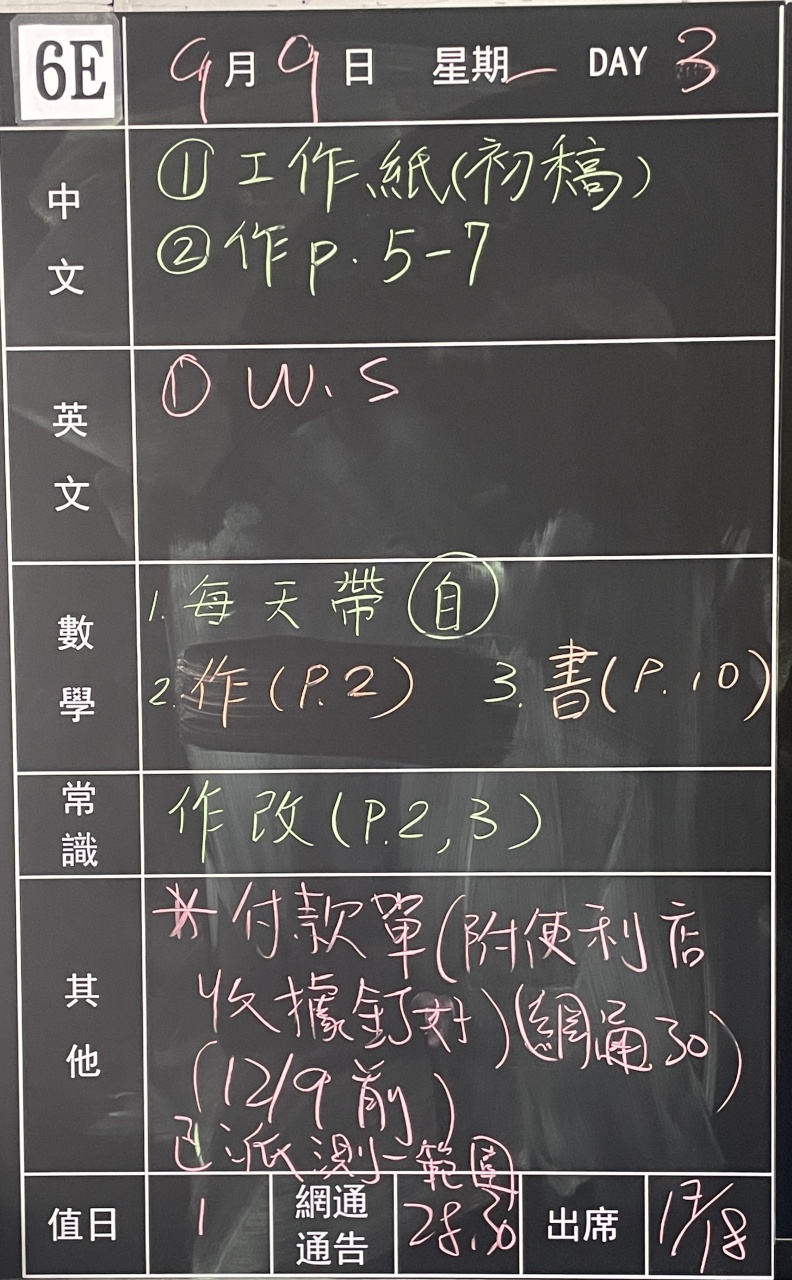 6E 9月9日 星期一 DAY 3
中文
①工作紙(初稿)
②作p.5-7
英文
① W.S
數學
1.每天帶自
2.作(P.2) 3.書(P.10)
常識
作改(P.2,3)
其他
*付款單(附便利店
收據釘好)(網通30)
(12/9前)
已派測一範圍
值日 1 網通通告 28,30 出席 17/18